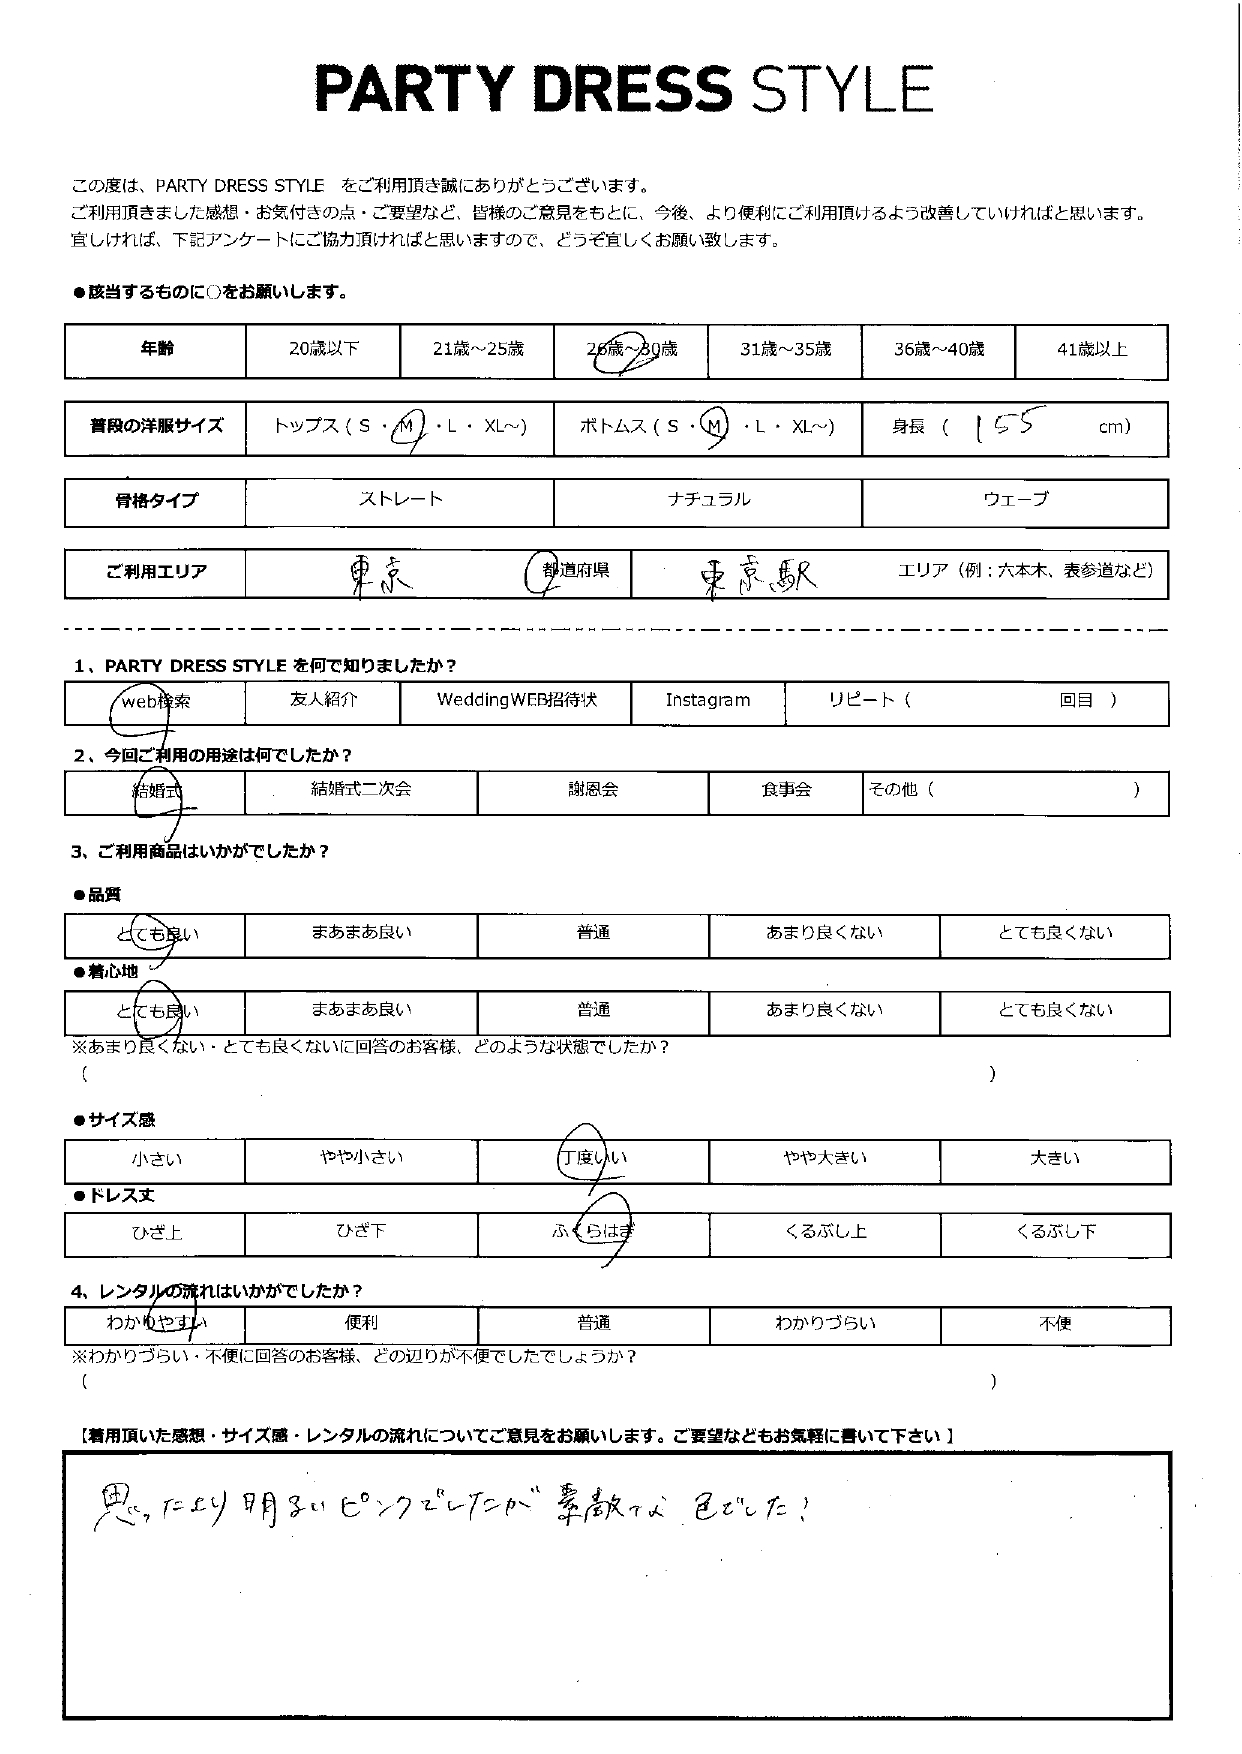 PARTY DRESS STYLE
この度は、PARTY DRESS STYLE をご利用頂き誠にありがとうございます。
ご利用頂きました感想・お気付きの点・ご要望など、皆様のご意見をもとに、今後、より便利にご利用頂けるよう改善していければと思います。
宜しければ、下記アンケートにご協力頂ければと思いますので、どうぞ宜しくお願い致します。
●該当するものに○をお願いします。
年齢 20歳以下 21歳～25歳 26歳～30歳 31歳～35歳 36歳～40歳 41歳以上
普段の洋服サイズ トップス ( S ・ M ・ L ・ XL～) ボトムス ( S ・ M ・ L ・ XL～) 身長 ( 155 cm)
骨格タイプ ストレート ナチュラル ウェーブ
ご利用エリア 東京 都道府県 東京駅 エリア（例：六本木、表参道など）
1、PARTY DRESS STYLE を何で知りましたか？
web検索 友人紹介 WeddingWEB招待状 Instagram リピート（ 回目 ）
2、今回ご利用の用途は何でしたか？
結婚式 結婚式二次会 謝恩会 食事会 その他（ ）
3、ご利用商品はいかがでしたか？
●品質
とても良い まあまあ良い 普通 あまり良くない とても良くない
●着心地
とても良い まあまあ良い 普通 あまり良くない とても良くない
※あまり良くない・とても良くないに回答のお客様、どのような状態でしたか？
（ ）
●サイズ感
小さい やや小さい 丁度いい やや大きい 大きい
●ドレス丈
ひざ上 ひざ下 ふくらはぎ くるぶし上 くるぶし下
4、レンタルの流れはいかがでしたか？
わかりやすい 便利 普通 わかりづらい 不便
※わかりづらい・不便に回答のお客様、どの辺りが不便でしたでしょうか？
（ ）
【着用頂いた感想・サイズ感・レンタルの流れについてご意見をお願いします。ご要望などもお気軽に書いて下さい 】
思ったより明るいピンクでしたが素敵な色でした！